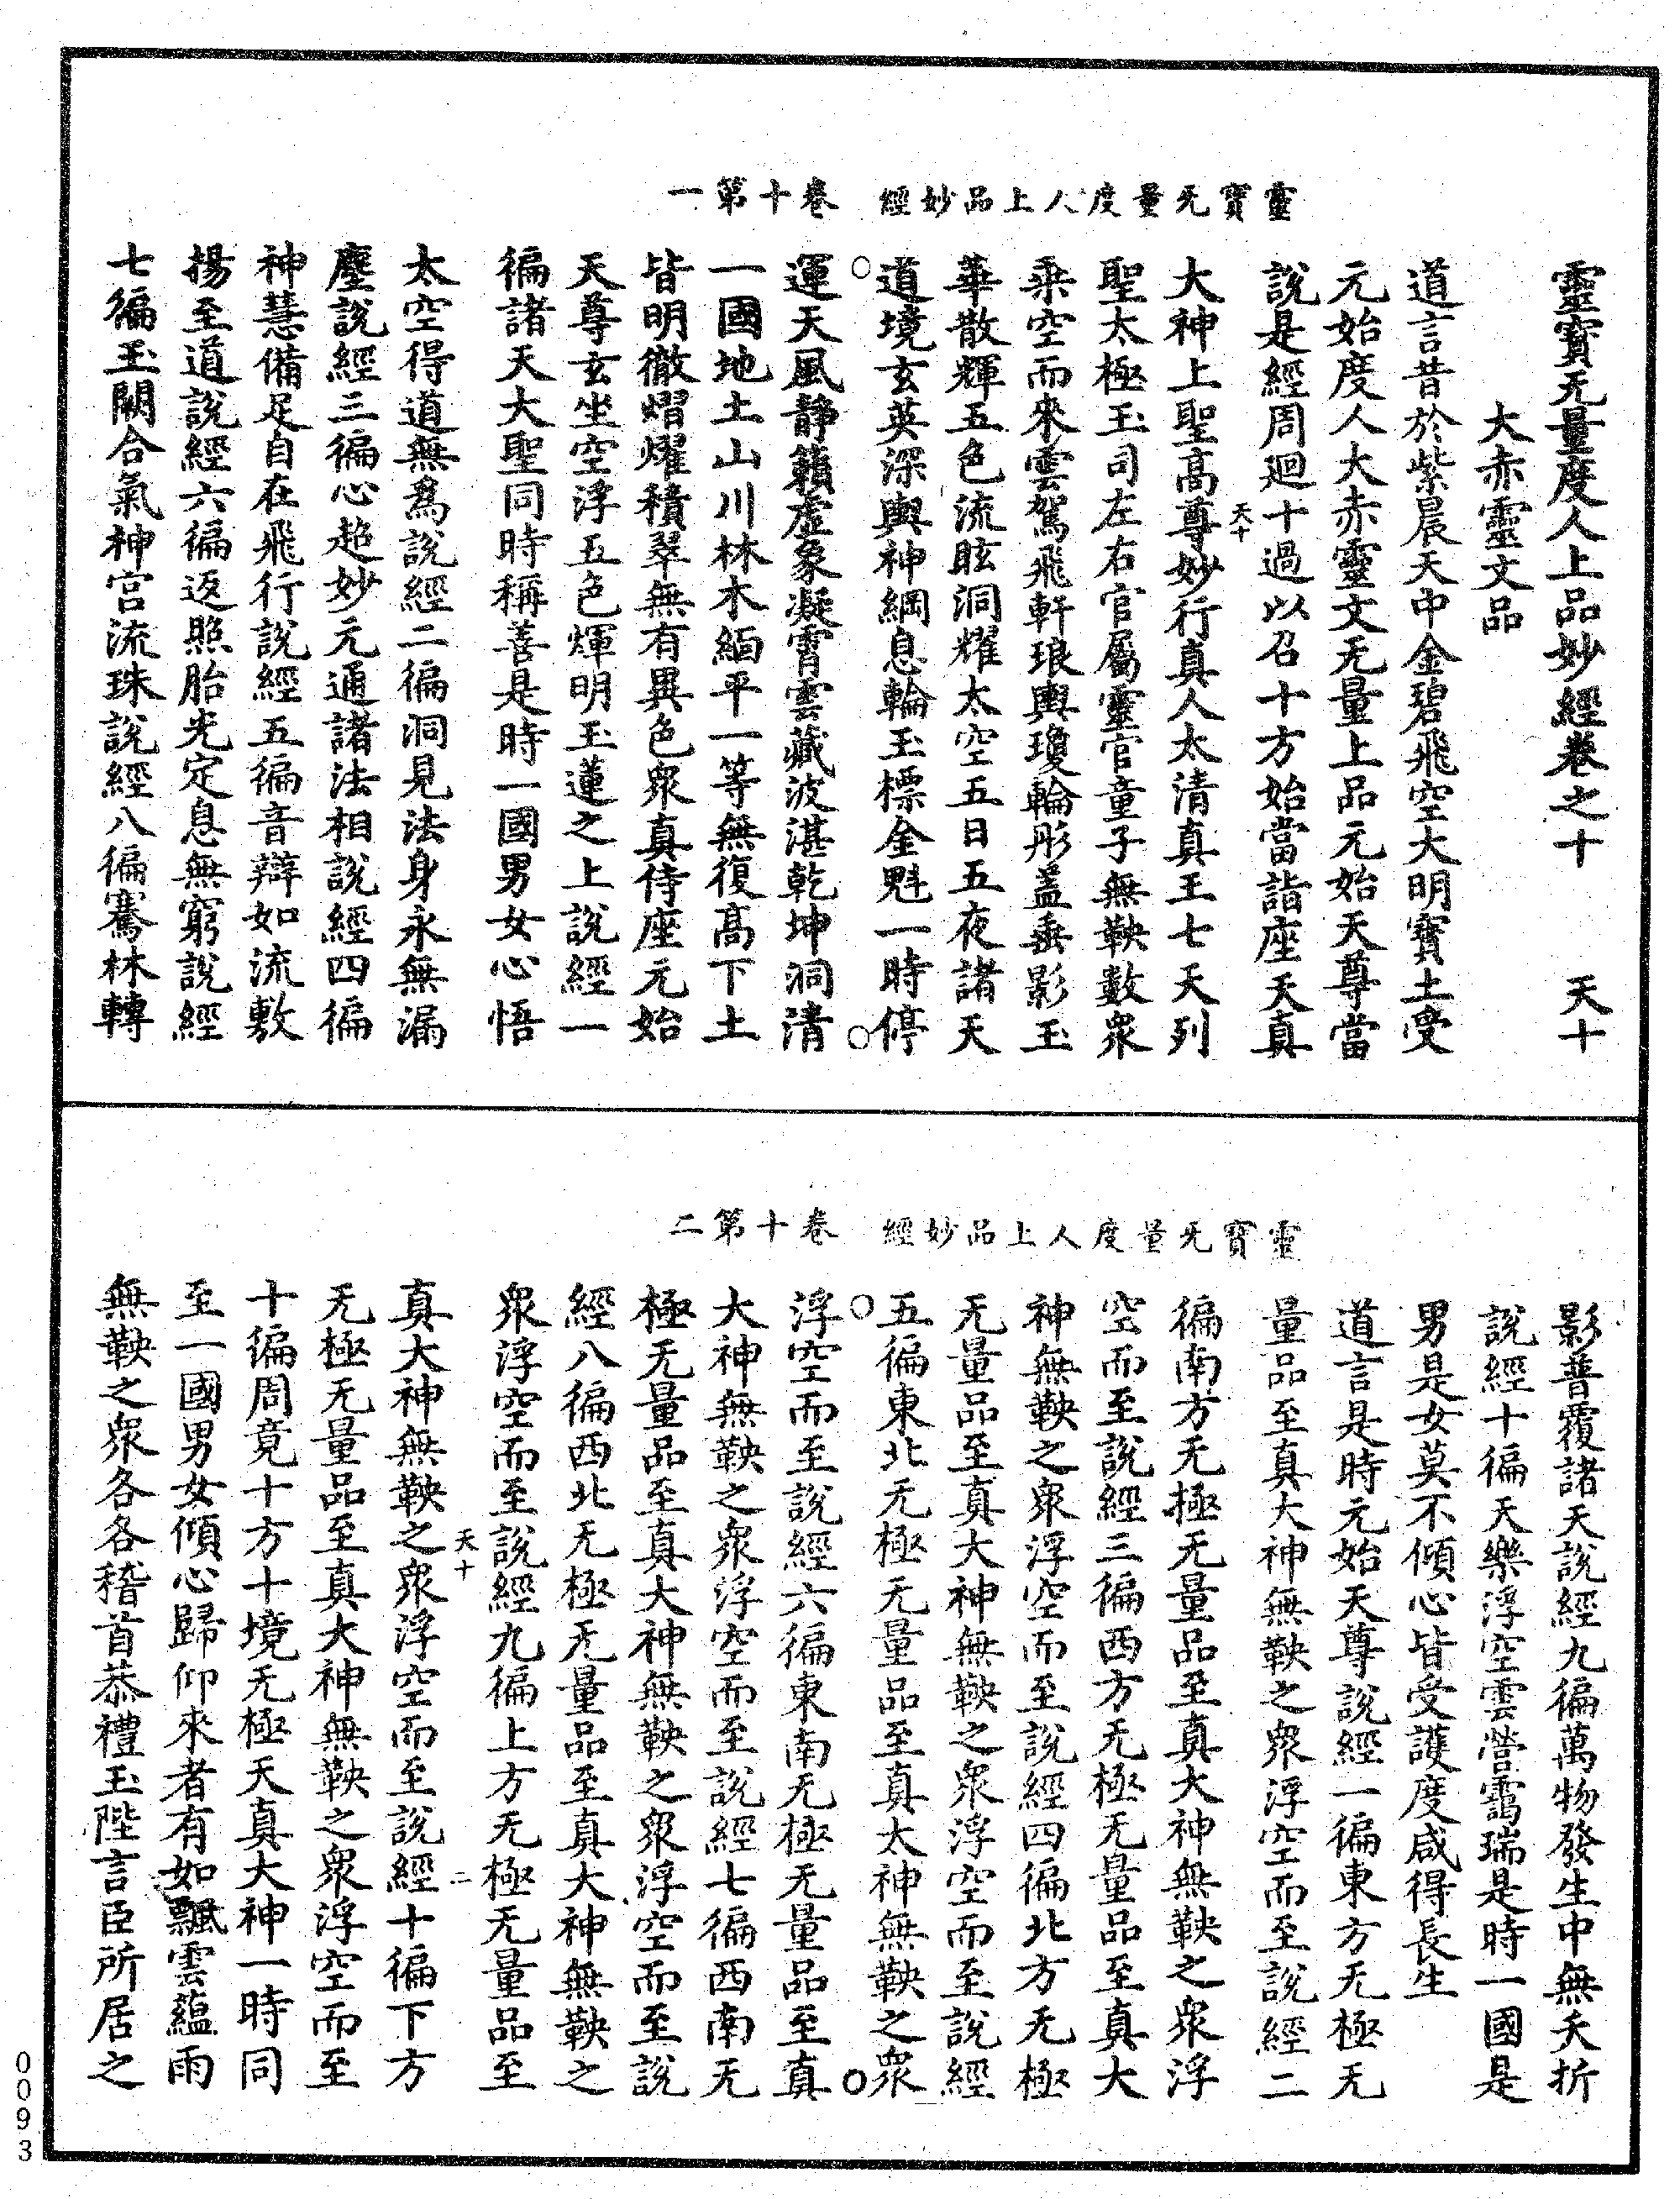 靈寶无量度人上品妙經　卷十第一
靈寶无量度人上品妙經卷之十　天十
大赤靈文品
道言昔於紫晨天中金碧飛空大明寶土受
元始度人大赤靈文无量上品元始天尊當
說是經周廻十過以召十方始當詣座天真
天十
大神上聖高尊妙行真人太清真王七天列
聖太極玉司左右官屬靈官童子無鞅數衆
乗空而來雲駕飛軒琅輿瓊輪彤盖垂影玉
華散輝五色流眩洞耀太空五日五夜諸天
道境玄英深輿神綱息輪玉標金魁一時停
運天風靜籟虛象凝霄雲藏波湛乾坤洞清
一國地土山川林木緬平一等無復高下土
皆明徹熠燿積翠無有異色衆真侍座元始
天尊玄坐空浮五色煇明玉蓮之上說經一
徧諸天大聖同時稱善是時一國男女心悟
太空得道無爲說經二徧洞見法身永無漏
塵說經三徧心超妙元通諸法相說經四徧
神慧備足自在飛行說經五徧音辯如流敷
揚至道說經六徧返照胎光定息無窮說經
七徧玉闕合氣神宮流珠說經八徧騫林轉
靈寶无量度人上品妙經　卷十第二
影普覆諸天說經九徧萬物發生中無夭折
說經十徧天樂浮空雲營靄瑞是時一國是
男是女莫不傾心皆受護度咸得長生
道言是時元始天尊說經一徧東方无極无
量品至真大神無鞅之衆浮空而至說經二
徧南方无極无量品至真大神無鞅之衆浮
空而至說經三徧西方无極无量品至真大
神無鞅之衆浮空而至說經四徧北方无極
无量品至真大神無鞅之衆浮空而至說經
五徧東北无極无量品至真太神無鞅之衆
浮空而至說經六徧東南无極无量品至真
大神無鞅之衆浮空而至說經七徧西南无
極无量品至真大神無鞅之衆浮空而至說
經八徧西北无極无量品至真大神無鞅之
衆浮空而至說經九徧上方无極无量品至
天十　二
真大神無鞅之衆浮空而至說經十徧下方
无極无量品至真大神無鞅之衆浮空而至
十徧周竟十方十境无極天真大神一時同
至一國男女傾心歸仰來者有如飄雲蘊雨
無鞅之衆各各稽首恭禮玉陛言臣所居之
0093